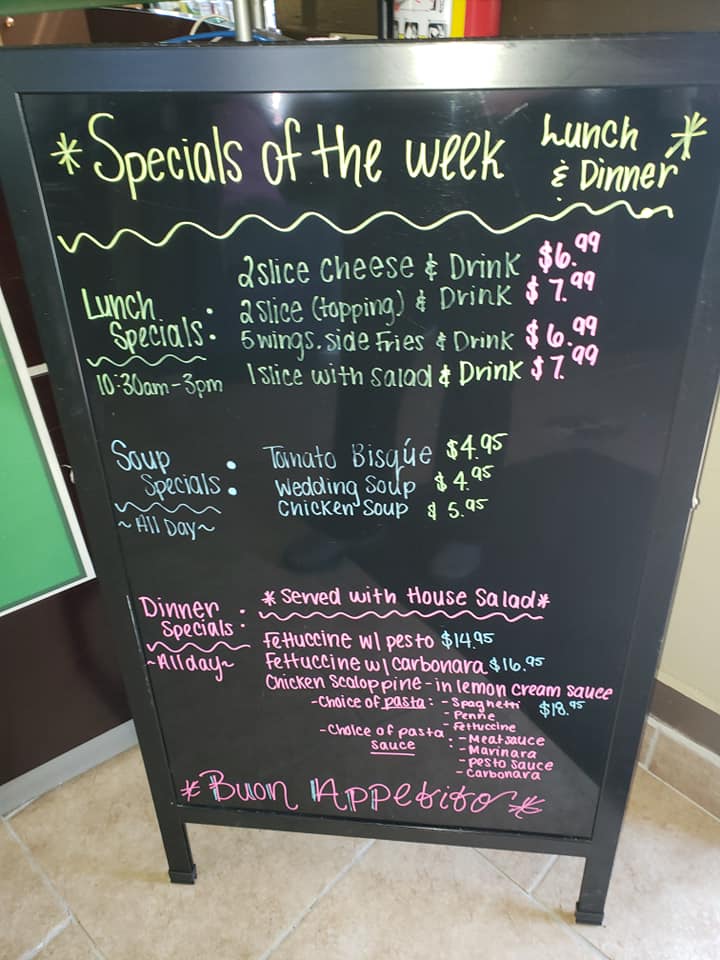 *Specials of the week Lunch & Dinner*
Lunch Specials:
10:30am-3pm
2 slice cheese & Drink $6.99
2 slice (topping) & Drink $7.99
5 wings. side Fries & Drink $6.99
1 slice with salad & Drink $7.99
Soup Specials:
~All Day~
Tomato Bisqúe $4.95
Wedding Soup $4.95
Chicken Soup $5.95
Dinner Specials:
~All day~
*Served with House Salad*
Fettuccine w/ pesto $14.95
Fettuccine w/ carbonara $16.95
Chicken Scaloppine - in lemon cream sauce $18.95
-Choice of pasta: - Spaghetti
- Penne
- Fettuccine
-Choice of pasta sauce: - Meatsauce
- Marinara
- pesto sauce
- Carbonara
*Buon Appetito*